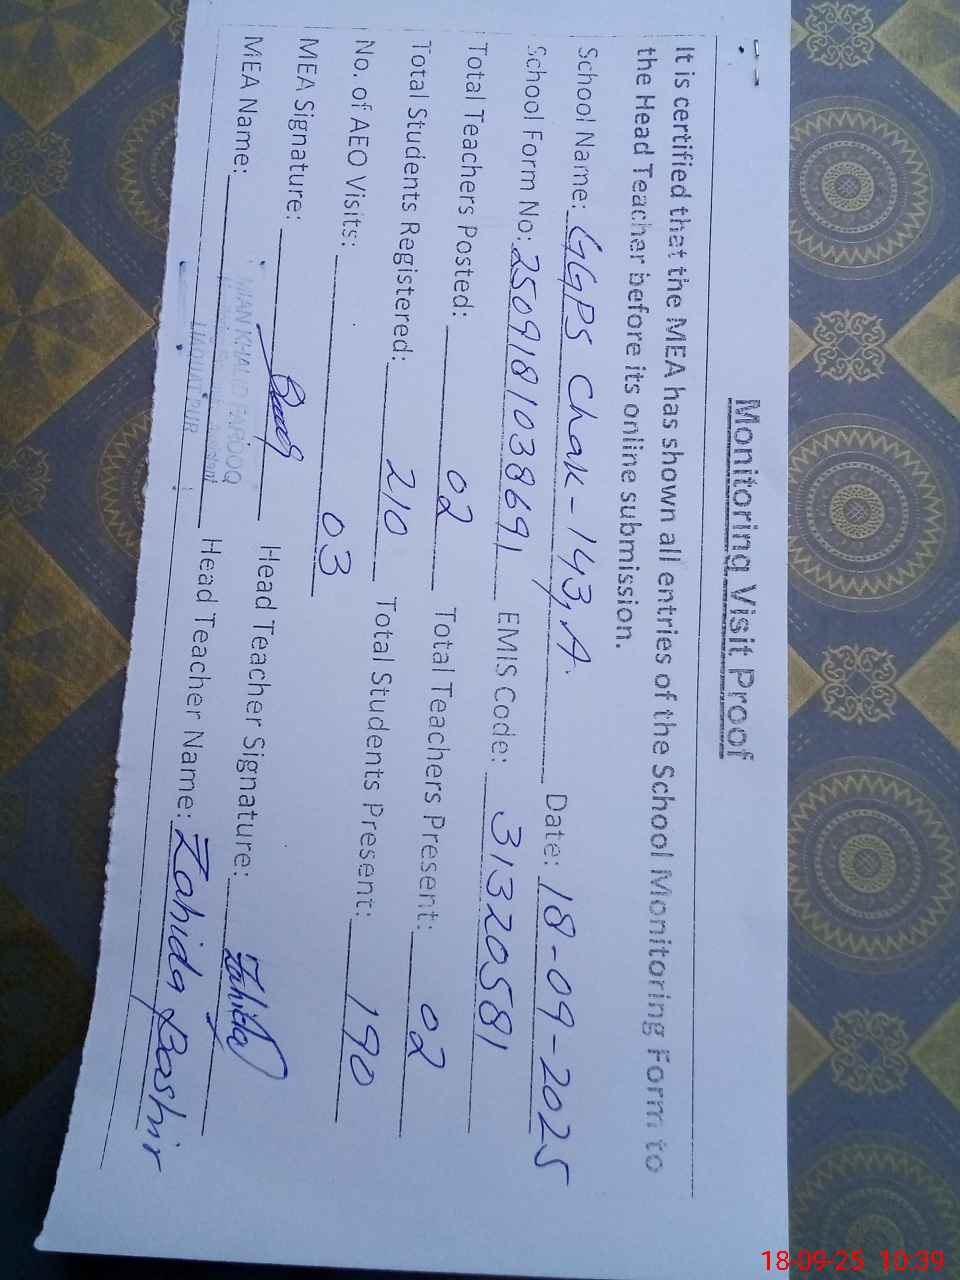 Monitoring Visit Proof
It is certified that the MEA has shown all entries of the School Monitoring Form to
the Head Teacher before its online submission.
School Name: GGPS Chak-143,A. Date: 18-09-2025
School Form No: 2509181038691 EMIS Code: 31320581
Total Teachers Posted: 02 Total Teachers Present: 02
Total Students Registered: 210 Total Students Present: 190
No. of AEO Visits: 03
MEA Signature: Head Teacher Signature: Zahida
MEA Name: MIAN KHALID FAROOQ Head Teacher Name: Zahida Bashir
LIAQUATPUR
18-09-25 10:39